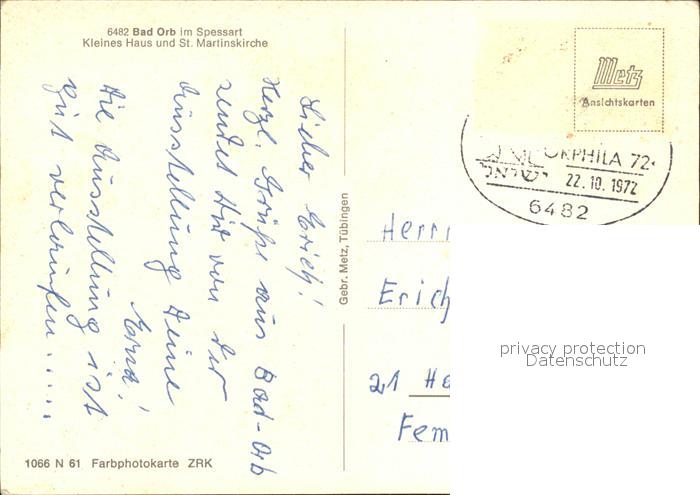 6482 Bad Orb im Spessart
Kleines Haus und St. Martinskirche
Lieber Erich!
Herzl. Grüße aus Bad-Orb
sendet Dir von der
Ausstellung Deine
Erna!
Die Ausstellung ist
gut verlaufen.....
Gebr. Metz, Tübingen
1066 N 61 Farbphotokarte ZRK
Metz
Ansichtskarten
ORPHILA 72
ישראל
22.10.1972
6482
Herr
Erich
21 Ha
Fem
privacy protection
Datenschutz